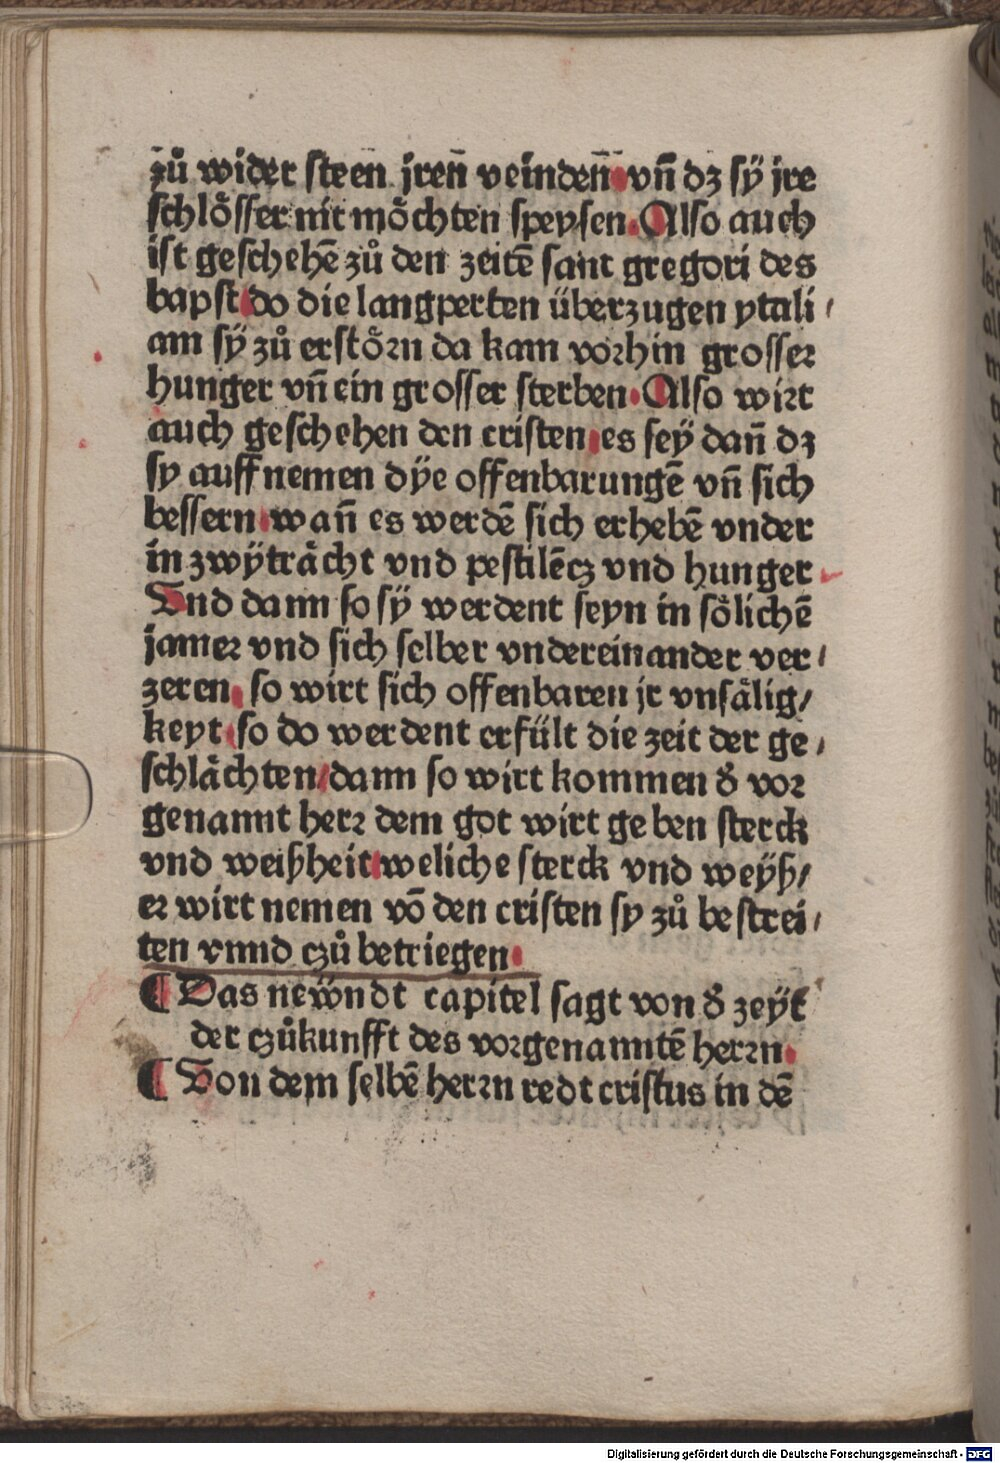 zů wider steen jren̄ veinden̄ vn̄ dz sÿ jre
schlösser nit möchten speysen. Also auch
ist geschehē zů den zeitē sant gregori des
bapst do die langperten überzugen ytali/
am sÿ zů erstörn da kam vorhin grosser
hunger vn̄ ein grosser sterben. Also wirt
auch geschehen den cristen es sey dan̄ dz
sy auff nemen dÿe offenbarungē vn̄ sich
bessern wan̄ es werdē sich erhebē vnder
in zwÿtråcht vnd pestilēcz vnd hunger
Vnd dann so sÿ werdent seyn in sölichē
jamer vnd sich selber vndereinander ver/
zeren, so wirt sich offenbaren jr vnsålig/
keyt so do werdent erfült die zeit der ge/
schlåchten/dann so wirt kommen d̓ vor
genannt herr dem got wirt geben sterck
vnd weißheit weliche sterck vnd weÿß/
er wirt nemen vō den cristen sy zů bestrei/
ten vnnd czů betriegen.
¶ Das neẅndt capitel sagt von d̓ zeÿt
der czůkunfft des vorgenanntē herrn.
¶ Von dem selbē herrn redt cristus in dē
Digitalisierung gefördert durch die Deutsche Forschungsgemeinschaft - DFG